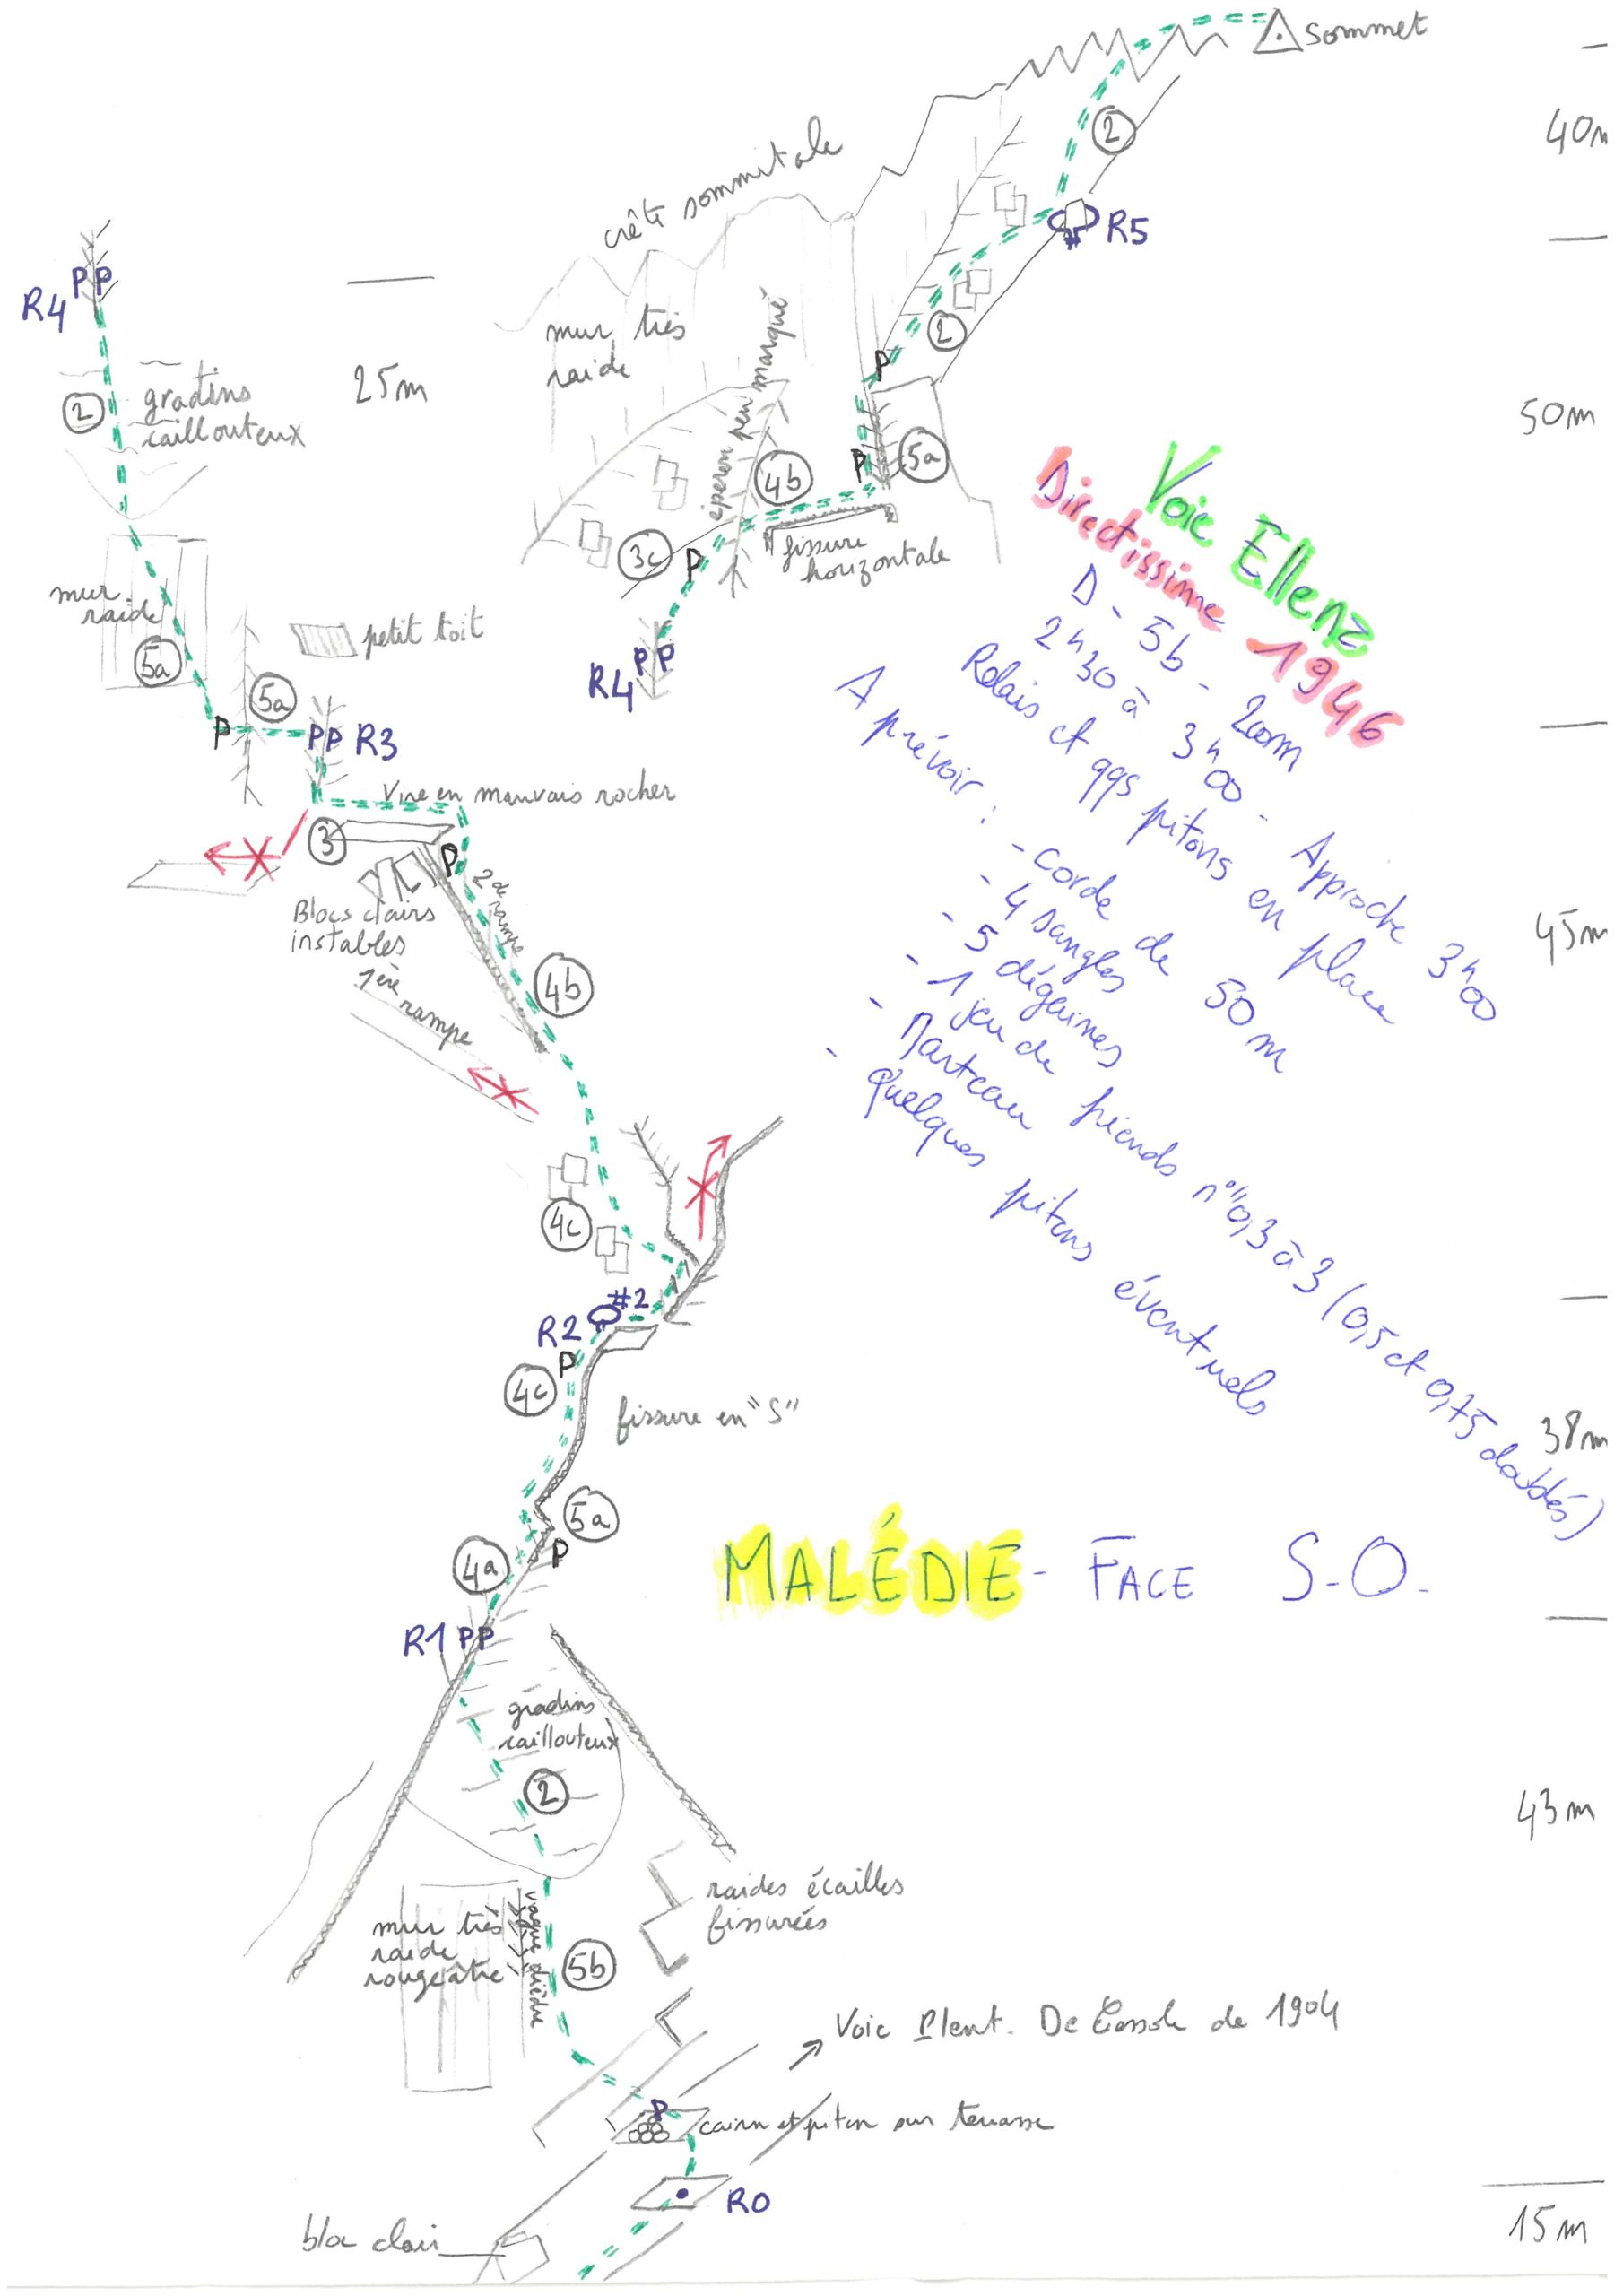 sommet
40m
2
R5
crête sommitale
PP
R4
25m
2
gradins
caillouteux
mur très
raide
éperon peu marqué
P
2
50m
P
5a
4b
3c
P
fissure
horizontale
PP
R4
mur
raide
5a
petit toit
5a
P
PP R3
Voie Ellenz
Directissime 1946
D - 5b - 200m
2h30 à 3h00 - Approche 3h00
Relais et qqs pitons en place
A prévoir : - Corde de 50m
- 4 sangles
- 5 dégaines
- 1 jeu de friends n° 0,3 à 3 (0,5 et 0,75 doublés)
- Marteau
- Quelques pitons éventuels
Vire en mauvais rocher
3
P
2de rampe
Blocs clairs
instables
45m
1ère rampe
4b
4c
#2
R2
P
4c
fissure en "S"
38m
5a
P
4a
MALÉDIE - FACE S.O.
R1 PP
gradins
caillouteux
2
43m
raides écailles
fissurées
mur très
raide
rougeâtre
vague dièdre
5b
Voie De Cessole de 1904
P
cairn et piton sur terrasse
R0
bloc clair
15m